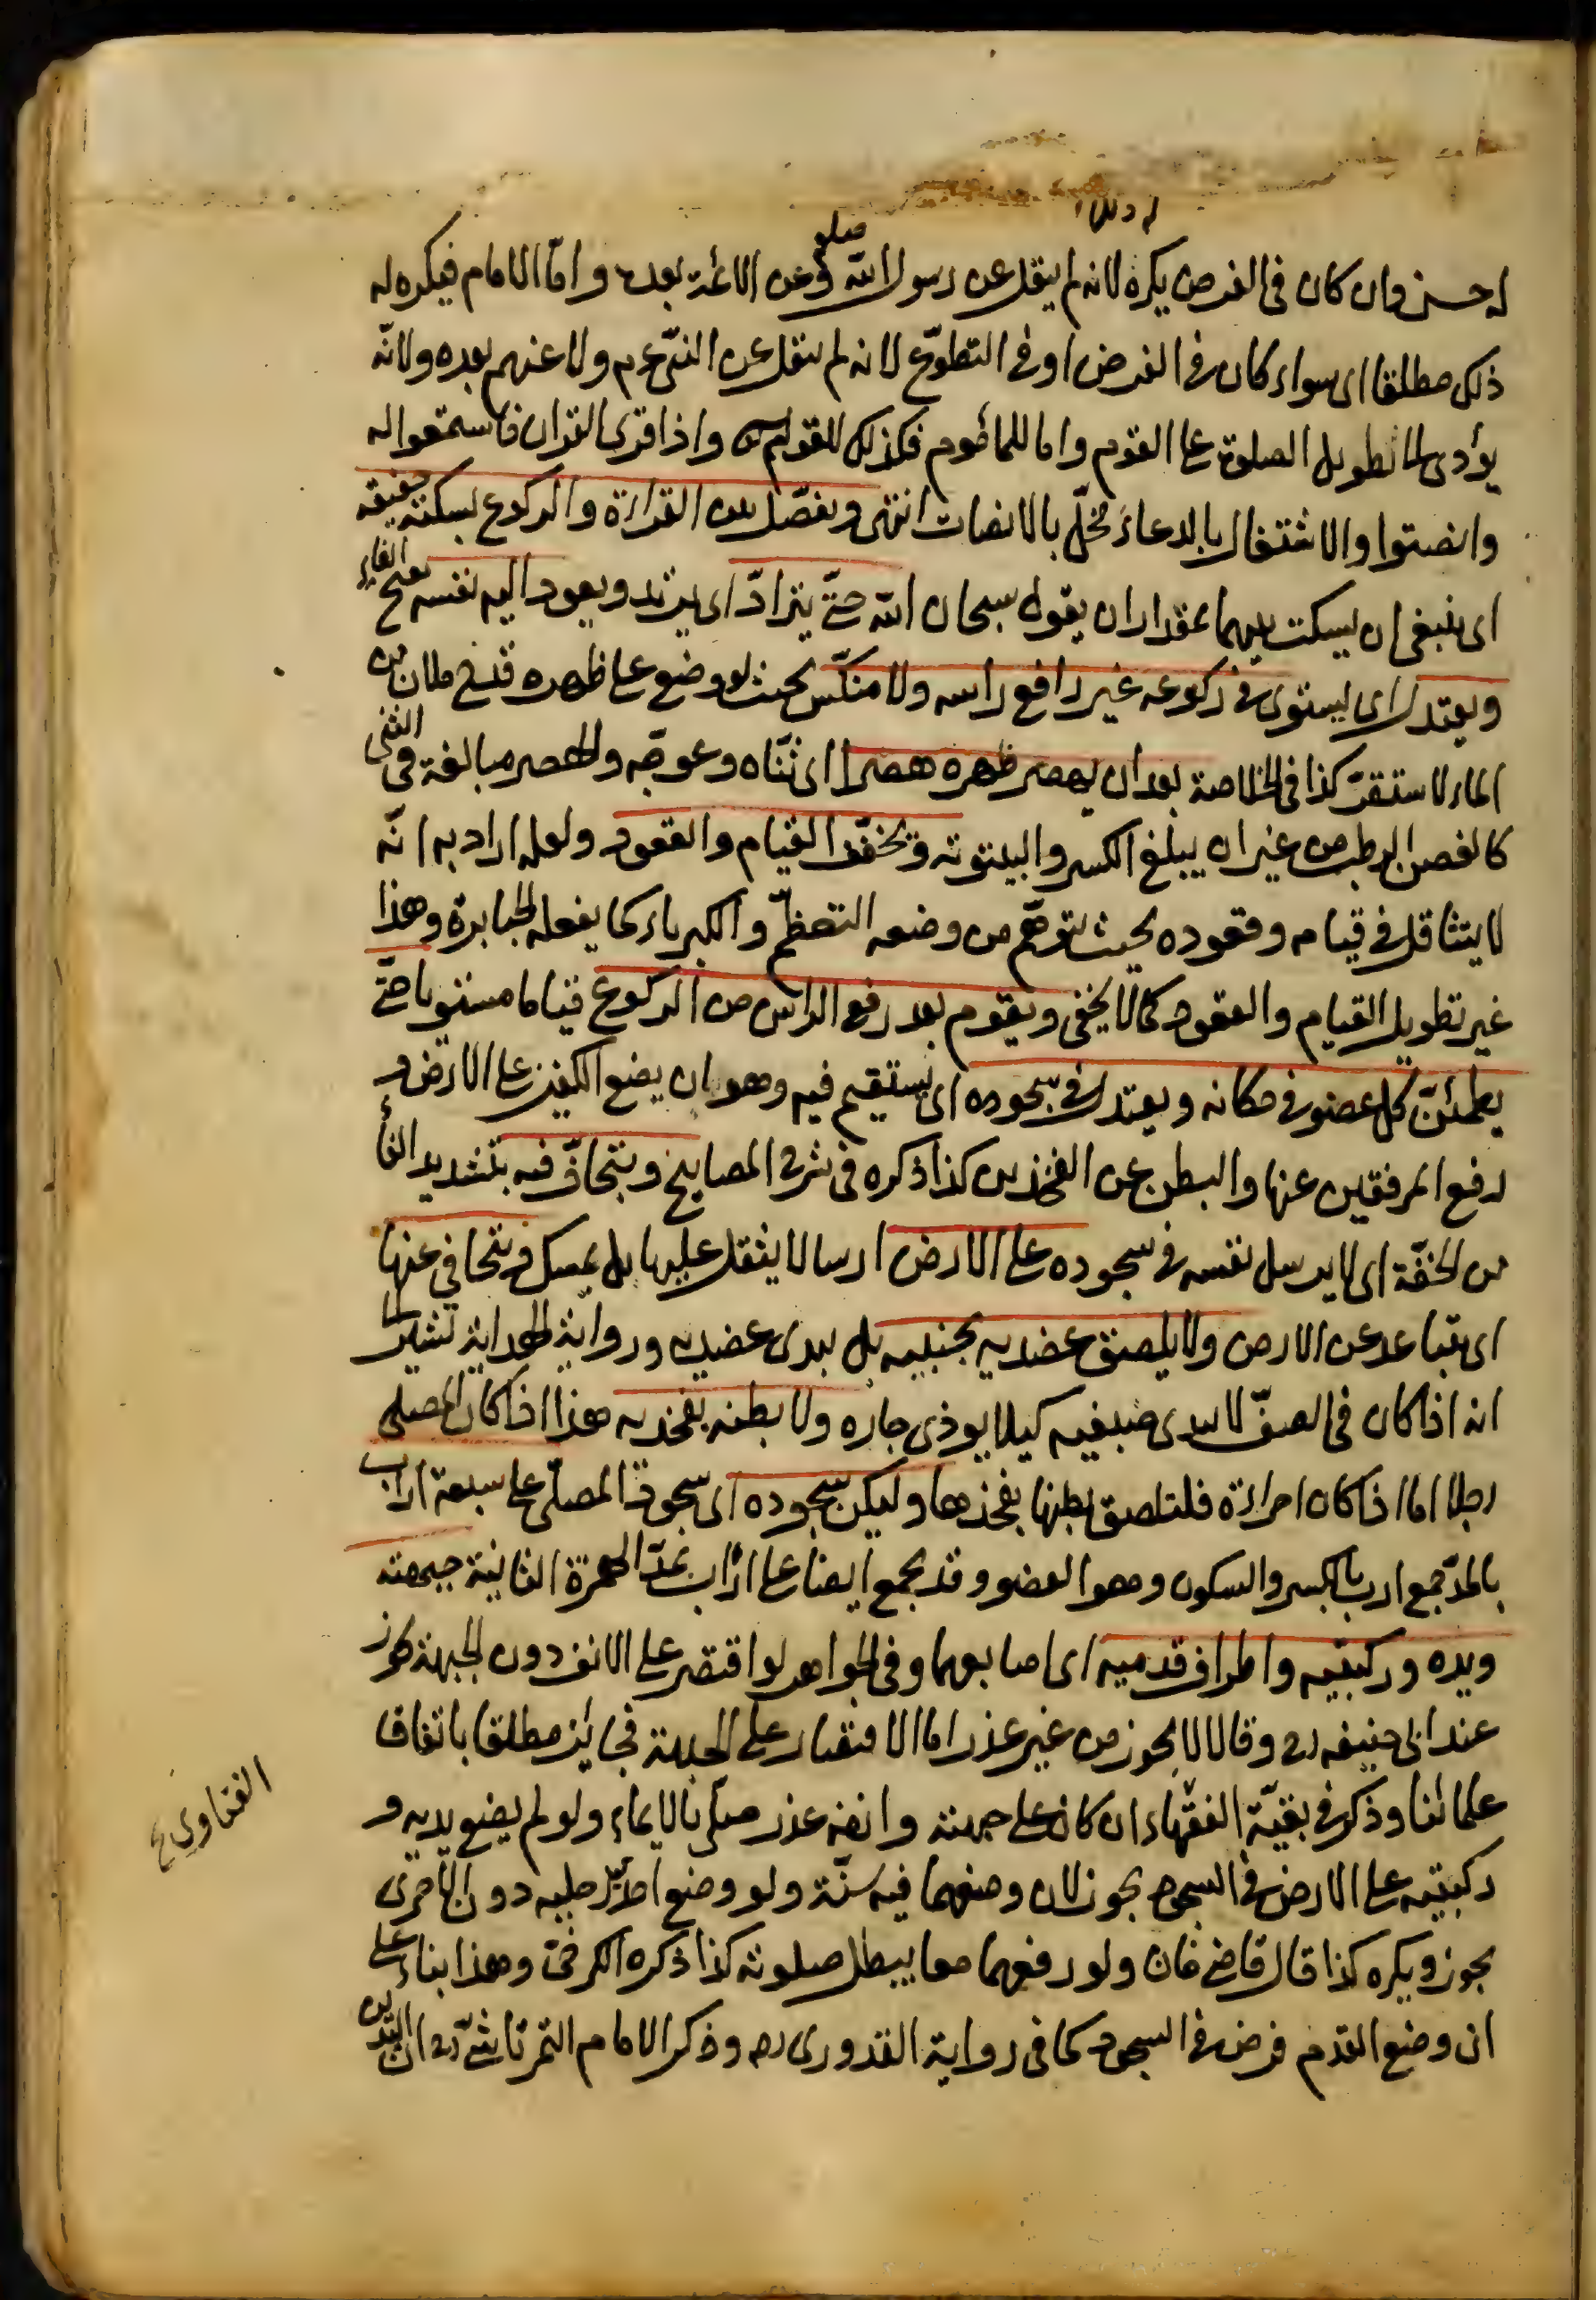 له حسن وان كان فى الفرض يكره لانه لم ينقل عن رسول الله صلعم وعن الائمة بعده واما الامام فيكره له
ذلك مطلقا اى سواء كان فى الفرض او فى التطوع لانه لم ينقل عن النبى عم ولا عنهم بعده ولانه
يؤدى الى تطويل الصلوة على القوم واما للمأموم فكذلك لقوله تعالى واذا قرئ القران فاستمعوا له
وانصتوا والاشتغال بالدعاء مخلّ بالانصات انتهى ويفصل بين القراءة والركوع بسكتة خفيفة
اى ينبغى ان يسكت بينهما بمقدار ان يقول سبحان الله حتى يترادّ اى يرتد ويعود اليه نفسه بفتح الفاء
ويعتدل اى يستوى فى ركوعه غير رافع راسه ولا منكّس بحيث لو وضع على ظهره قدح ملان من
الماء لاستقرّ كذا فى الخلاصة بعد ان يهصر ظهره هصرا اى ثنّاه وعوجه والهصر مبالغة فى الثنى
كالغصن الرطب من غير ان يبلغ الكسر والبينونة ويخفّف القيام والقعود ولعله اراد به انّه
لا يتثاقل فى قيامه وقعوده بحيث يتوهّم من وضعه التعظّم والكبرياء كما يفعله الجبابرة وهذا
غير تطويل القيام والقعود كما لا يخفى ويقوم بعد رفع الراس من الركوع قياما مستويا حتّى
يطمئنّ كل عضو فى مكانه ويعتدل فى سجوده اى يستقيم فيه وهو ان يضع الكفين على الارض و
رفع المرفقين عنها والبطن عن الفخذين كذا ذكره فى شرح المصابيح ويتجافّ فيه بتشديد الفاء
من الخفّة اى لا يرسل نفسه فى سجوده على الارض ارسالا يثقل عليها بل يمسك ويتجافى عنها
اى يتباعد عن الارض ولا يلصق عضديه بجنبيه بل يبدى عضديه ورواية الهداية تشير الى
انه اذا كان فى الصفّ لا يبدى ضبعيه كيلا يوذى جاره ولا بطنه بفخذيه هذا اذا كان المصلى
رجلا اما اذا كان امراءة فلتلصق بطنها بفخذها وليكن سجوده اى سجود المصلّى على سبعة اراب
بالمدّ جمع ارب بالكسر والسكون وهو العضو وقد يجمع ايضا على اأراب بمدّ الهمزة الثانية جبهته
ويده وركبتيه واطراف قدميه اى اصابعهما وفى الجواهر لو اقتصر على الانف دون الجبهة يجوز
عند ابى حنيفه رح وقالا لا يجوز من غير عذر اما الاقتصار على الجبهة فجائز مطلقا باتفاق
علمائنا وذكر فى بقيّة الفقهاء ان كان على جبهته وانفه عذر صلّى بالايماء ولو لم يضع يديه و
ركبتيه على الارض فى السجود يجوز لان وضعهما فيه سنّة ولو وضع احد رجليه دون الاخرى
يجوز ويكره كذا قال قاضى خان ولو رفعهما معا يبطل صلوته كذا ذكره الكرخى وهذا بناء على
ان وضع القدم فرض فى السجود كما فى رواية القدورى رح وذكر الامام التمرتاشى رح ان اليدين
الفتاوى ع